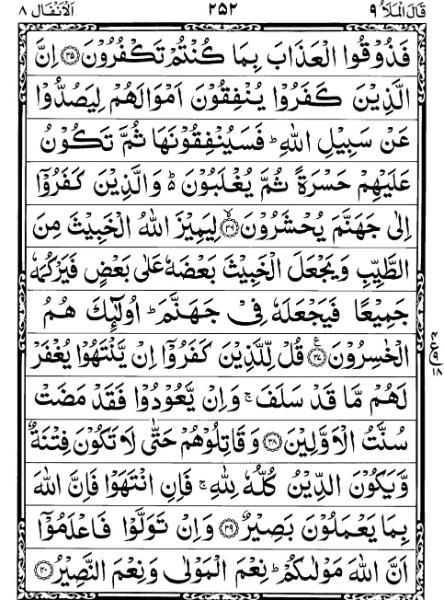 قَالَ الْمَلَاُ ٩ ٢٥٢ اَلْاَنْفَال ٨
فَذُوْقُوا الْعَذَابَ بِمَا كُنْتُمْ تَكْفُرُوْنَ ﴿٣٥﴾ اِنَّ
الَّذِيْنَ كَفَرُوْا يُنْفِقُوْنَ اَمْوَالَهُمْ لِيَصُدُّوْا
عَنْ سَبِيْلِ اللّٰهِ ؕ فَسَيُنْفِقُوْنَهَا ثُمَّ تَكُوْنُ
عَلَيْهِمْ حَسْرَةً ثُمَّ يُغْلَبُوْنَ ؕ۬ وَالَّذِيْنَ كَفَرُوْۤا
اِلٰى جَهَنَّمَ يُحْشَرُوْنَ ﴿٣٦﴾ۙ لِيَمِيْزَ اللّٰهُ الْخَبِيْثَ مِنَ
الطَّيِّبِ وَيَجْعَلَ الْخَبِيْثَ بَعْضَهٗ عَلٰى بَعْضٍ فَيَرْكُمَهٗ
جَمِيْعًا فَيَجْعَلَهٗ فِيْ جَهَنَّمَ ؕ اُولٰٓئِكَ هُمُ
الْخٰسِرُوْنَ ﴿٣٧﴾ ع قُلْ لِّلَّذِيْنَ كَفَرُوْۤا اِنْ يَّنْتَهُوْا يُغْفَرْ
٤ ع ٩ ١٨
لَهُمْ مَّا قَدْ سَلَفَ ۚ وَاِنْ يَّعُوْدُوْا فَقَدْ مَضَتْ
سُنَّتُ الْاَوَّلِيْنَ ﴿٣٨﴾ وَقَاتِلُوْهُمْ حَتّٰى لَا تَكُوْنَ فِتْنَةٌ
وَّيَكُوْنَ الدِّيْنُ كُلُّهٗ لِلّٰهِ ۚ فَاِنِ انْتَهَوْا فَاِنَّ اللّٰهَ
بِمَا يَعْمَلُوْنَ بَصِيْرٌ ﴿٣٩﴾ وَاِنْ تَوَلَّوْا فَاعْلَمُوْۤا
اَنَّ اللّٰهَ مَوْلٰىكُمْ ؕ نِعْمَ الْمَوْلٰى وَنِعْمَ النَّصِيْرُ ﴿٤٠﴾